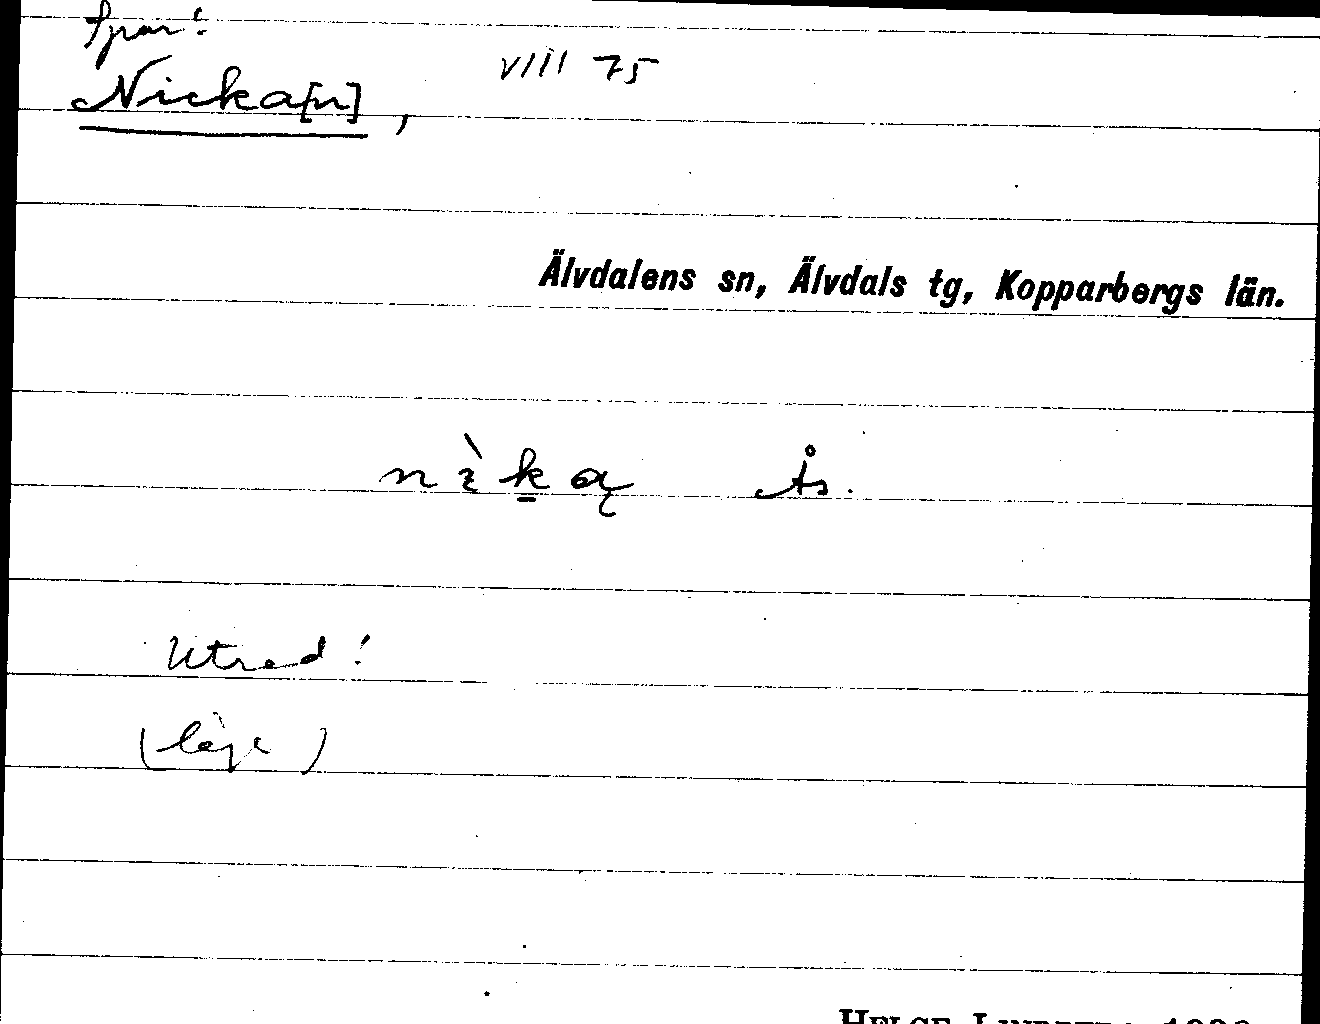 Spar!
Nicka[n], VIII 75
Älvdalens sn, Älvdals tg, Kopparbergs län.
nìka̜ Ås.
Utred!
(läge)
HELGE